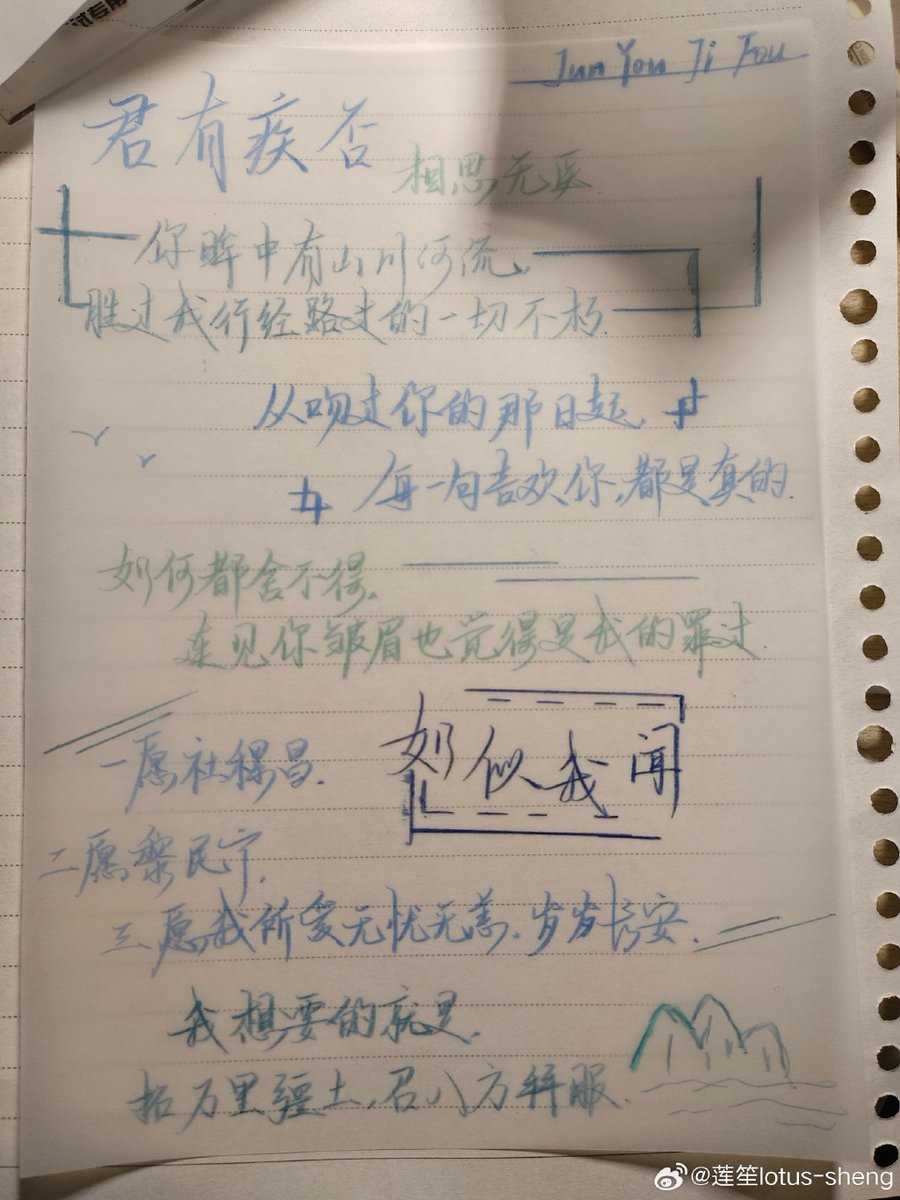 试专用
Jun You Ji Fou
君有疾否
相思无医
你眸中有山川河流,
胜过我行经路过的一切不朽.
从吻过你的那日起,
每一句喜欢你,都是真的.
如何都舍不得,
连见你皱眉也觉得是我的罪过.
如似我闻
一愿社稷昌.
二愿黎民宁,
三愿我所爱无忧无恙、岁岁长安.
我想要的就是,
拓万里疆土,召八方拜服.
@莲笙lotus-sheng